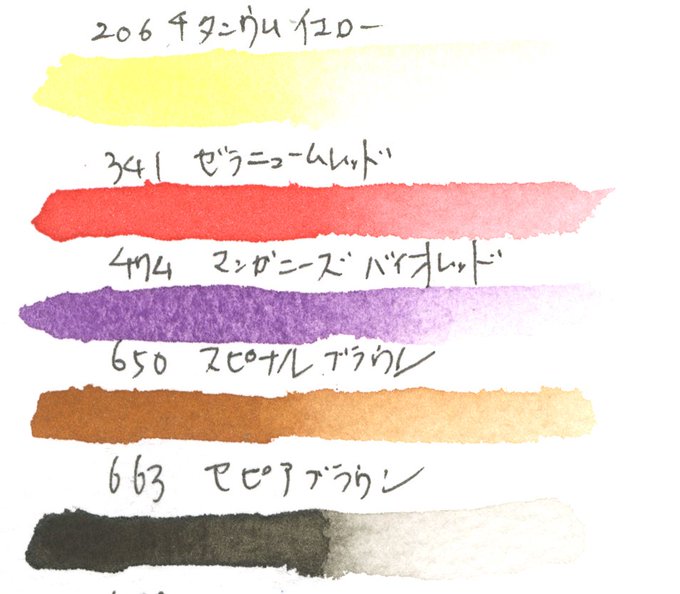 206 チタニウムイエロー
341 ゼラニュームレッド
474 マンガニーズ バイオレッド
650 スピナルブラウン
663 セピアブラウン